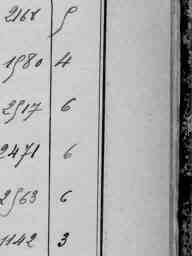 2168 5
1980 4
2517 6
2471 6
2563 6
1142 3